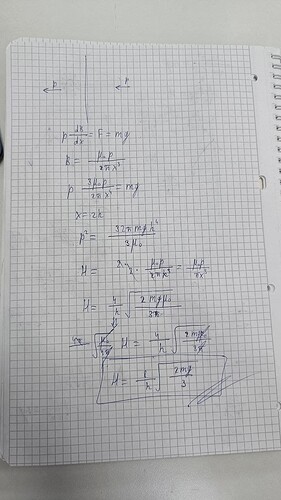 p p
p dB/dx = F = mg
B = μ₀p / 2πx³
p 3μ₀p / 2πx⁴ = mg
x = 2h
p² = 32π mg h⁴ / 3μ₀
H = 2 · μ₀p / 2πh³ = μ₀p / πh³
H = 4/h √(2mgμ₀ / 3π)
H = 4/h √(2mgμ₀ / 3π)
H = 8/h √(2mg / 3)